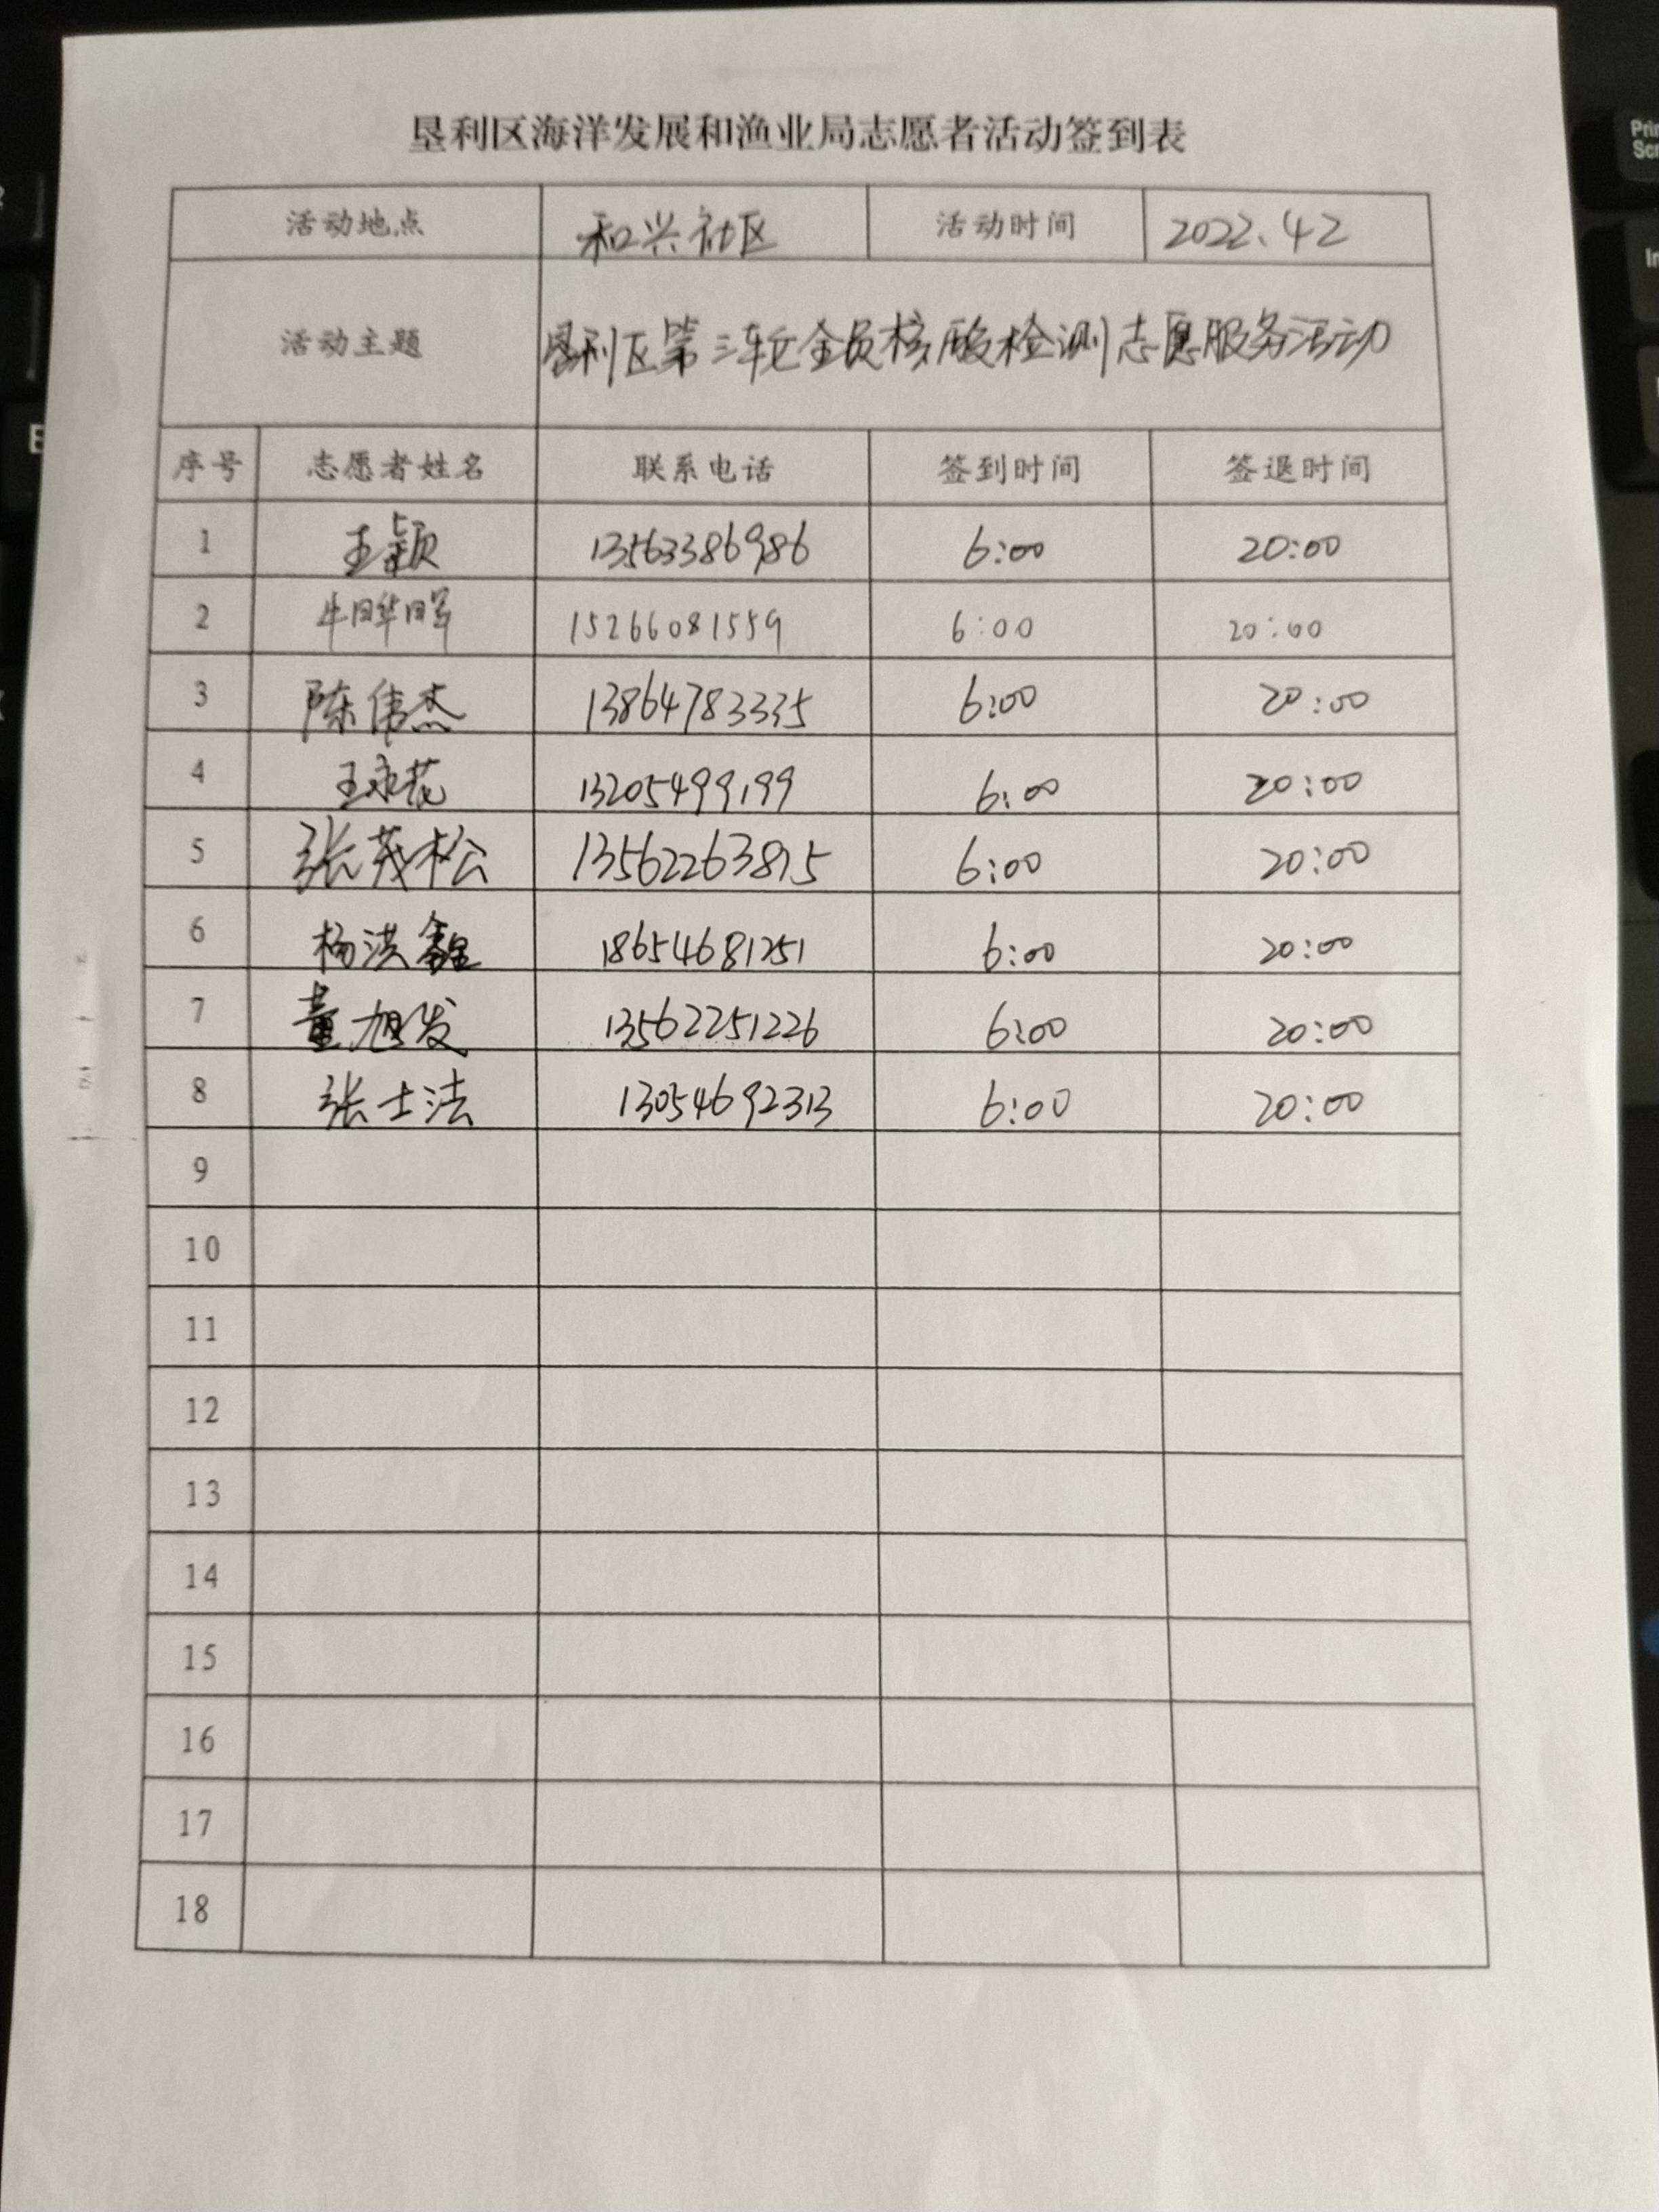 垦利区海洋发展和渔业局志愿者活动签到表
活动地点 和兴社区 活动时间 2022.4.2
活动主题 垦利区第三轮全员核酸检测志愿服务活动
序号 志愿者姓名 联系电话 签到时间 签退时间
1 王颖 13563386986 6:00 20:00
2 牛晔晖 15266081559 6:00 20:00
3 陈伟杰 13864783335 6:00 20:00
4 王永花 13205499199 6:00 20:00
5 张茂松 13562263875 6:00 20:00
6 杨洪鑫 18654681251 6:00 20:00
7 董旭发 13562251226 6:00 20:00
8 张士法 13054692313 6:00 20:00
9
10
11
12
13
14
15
16
17
18